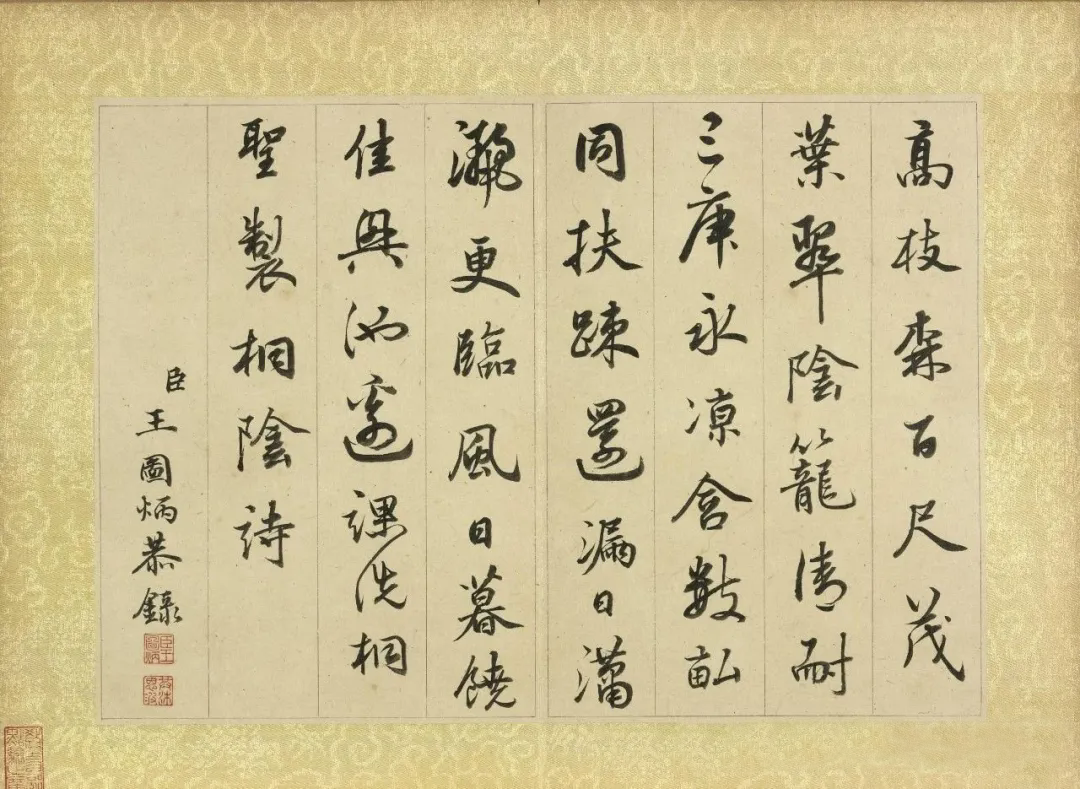 高枝森百尺茂
葉翠陰籠清耐
三庚永凉含數畝
同扶踈還漏日瀟
灑更臨風日暮饒
佳興池邊課洗桐
聖製桐陰詩
臣王圖炳恭錄
臣王圖炳